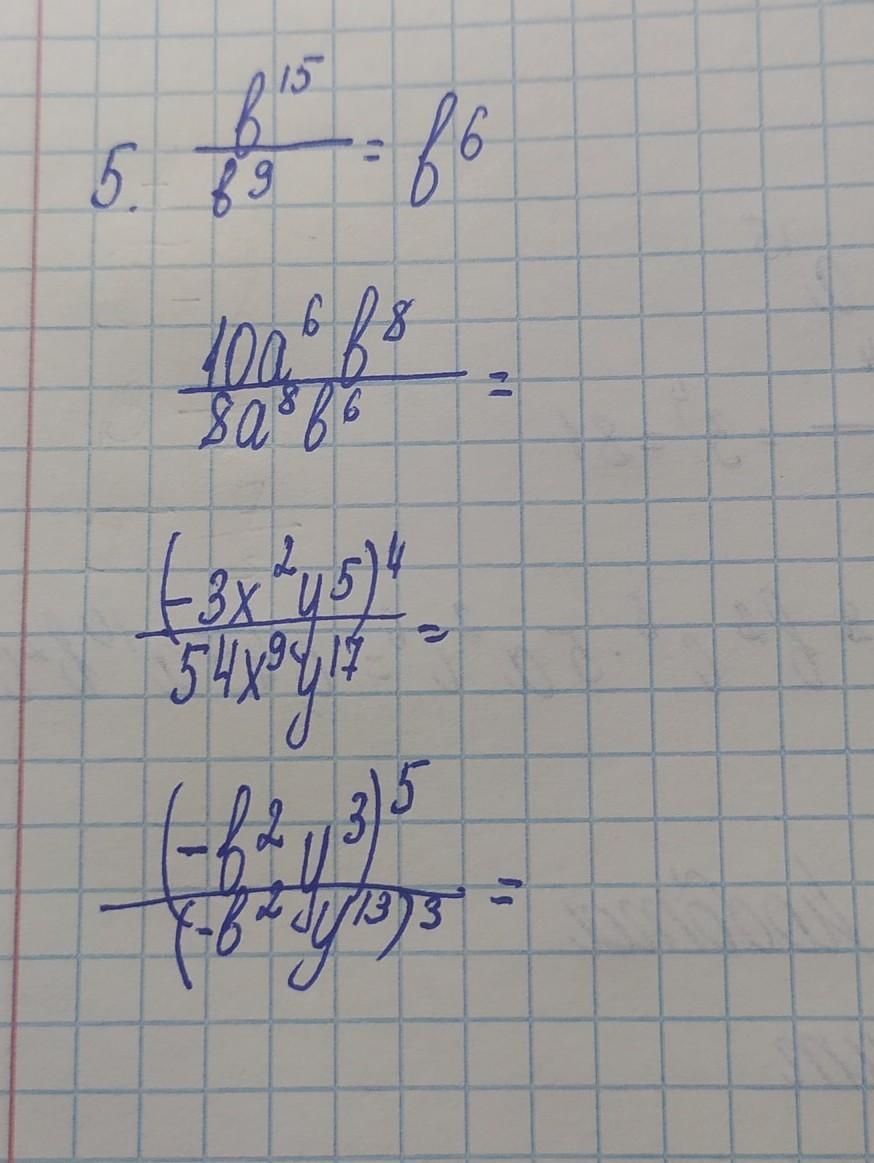 5. b¹⁵/b⁹ = b⁶
10a⁶b⁸/8a⁸b⁶ =
(-3x²y⁵)⁴/54x⁹y¹⁷ =
(-b²y³)⁵/(-b²y¹³)³ =